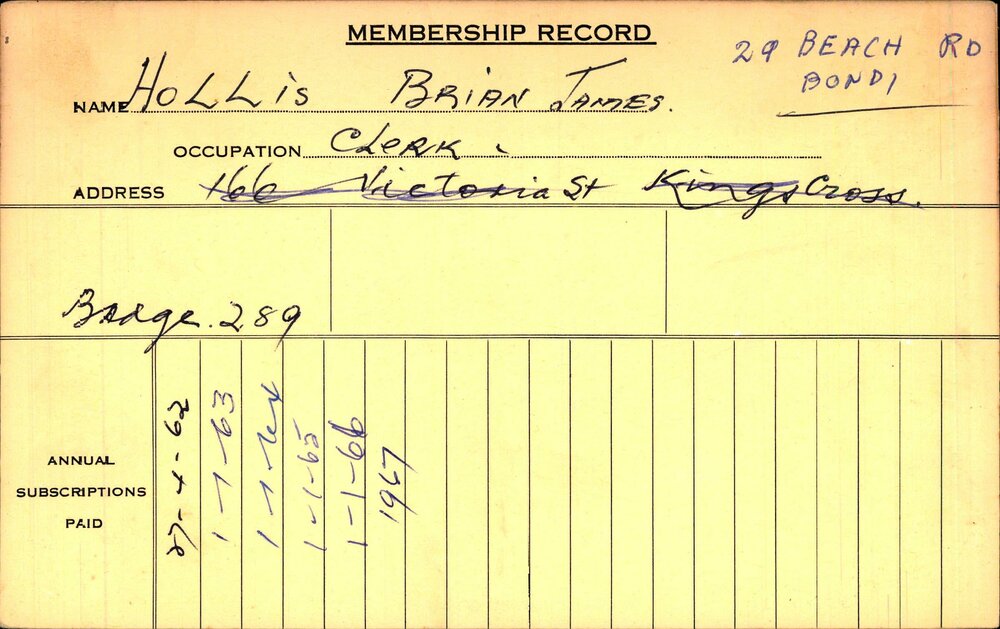 MEMBERSHIP RECORD
29 BEACH RD
BONDI
NAME HOLLIS BRIAN JAMES.
OCCUPATION CLERK.
ADDRESS 166 Victoria St Kings Cross.
Badge. 289
ANNUAL
SUBSCRIPTIONS
PAID
27-4-62
1-1-63
1-1-64
1-1-65
1-1-66
1967